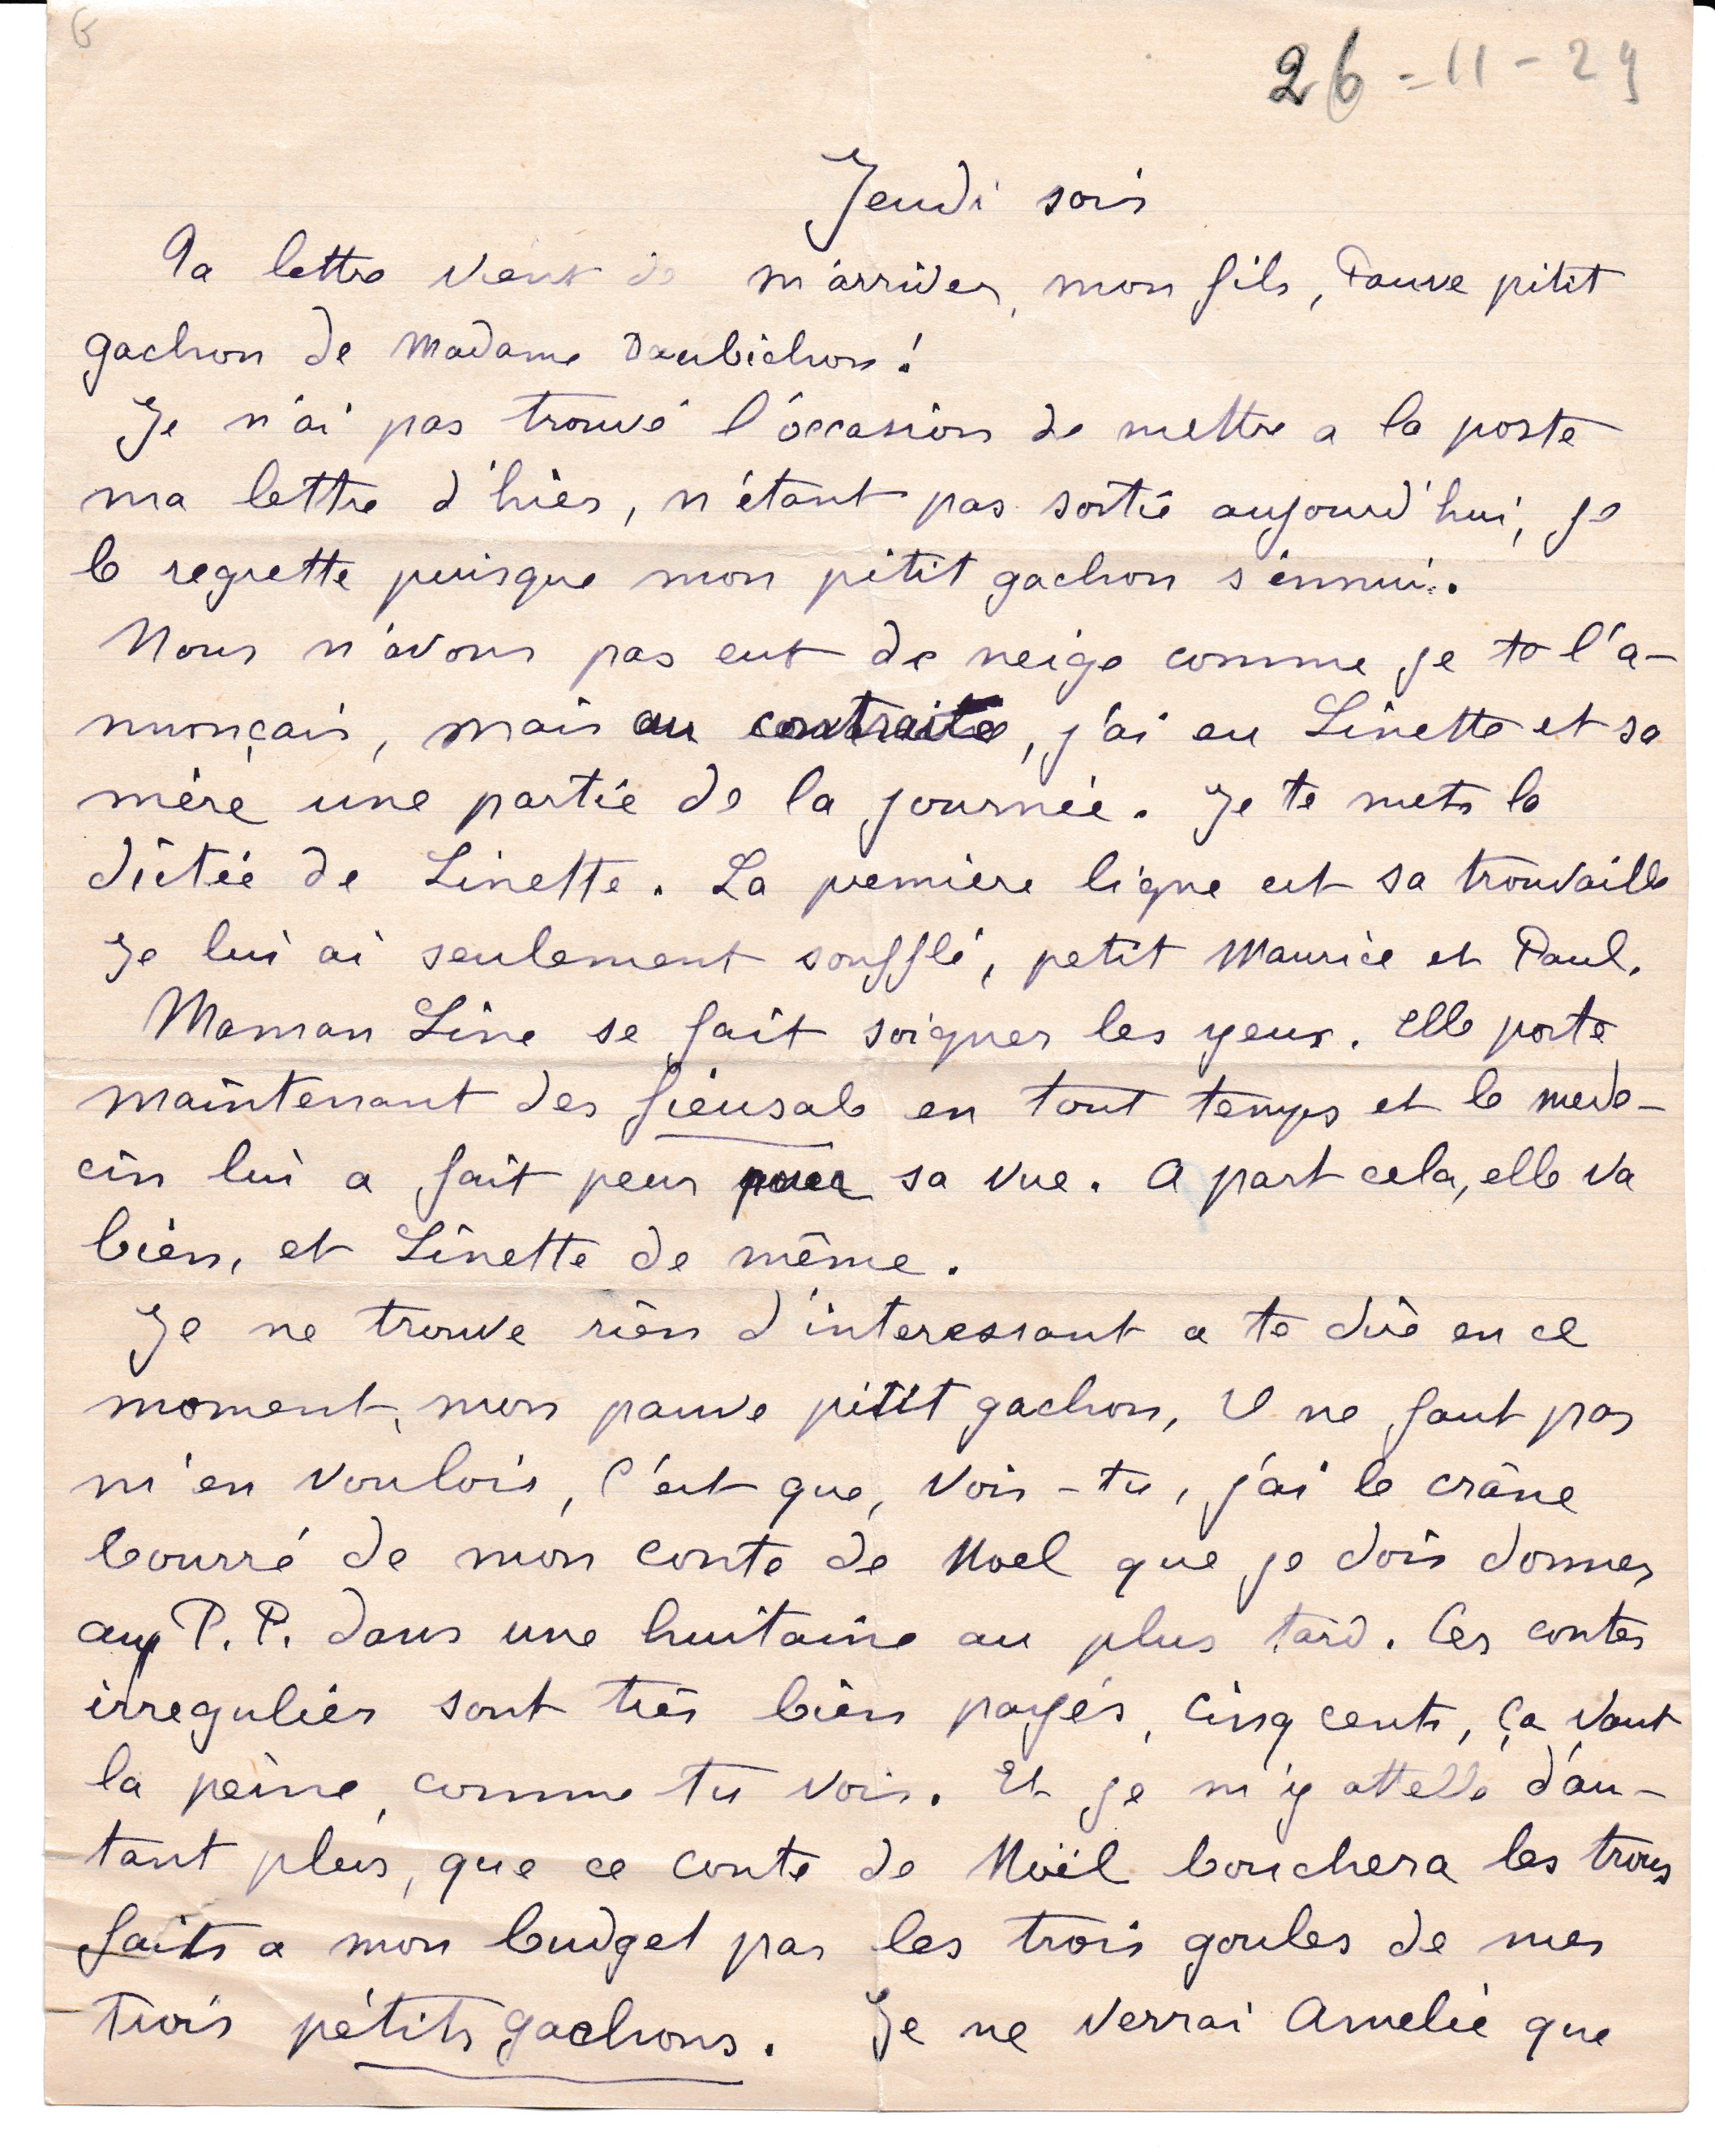 6
26-11-29
Jeudi soir
Ta lettre vient de m'arriver, mon fils, Pauve pitit
gachon de Madame Daubichon!
Je n'ai pas trouvé l'occasion de mettre a la poste
ma lettre d'hier, n'étant pas sortie aujourd'hui, je
le regrette puisque mon pitit gachon s'ennui.
Nous n'avons pas eut de neige comme je te l'a-
nnonçais, mais au contraire, j'ai eu Linette et sa
mère une partie de la journée. Je te mets la
dictée de Linette. La première ligne est sa trouvaille
Je lui ai seulement soufflé, petit Maurice et Paul.
Maman Line se fait soigner les yeux. Elle porte
maintenant des fieusals en tout temps et le mede-
cin lui a fait peur pour sa vue. A part cela, elle va
bien, et Linette de même.
Je ne trouve rien d'interessant a te dire en ce
moment, mon pauve pitit gachon, il ne faut pas
m'en vouloir, c'est que, vois-tu, j'ai le crâne
bourré de mon conte de Noel que je dois donner
au P.P. dans une huitaine au plus tard. Ces contes
irreguliers sont très bien payés, cinq cents, ça vaut
la peine, comme tu vois. Et je m'y attelle d'au-
tant plus, que ce conte de Noël bouchera les trous
faits a mon budget par les trois goules de mes
trois pétits gachons. Je ne verrai Amelie que